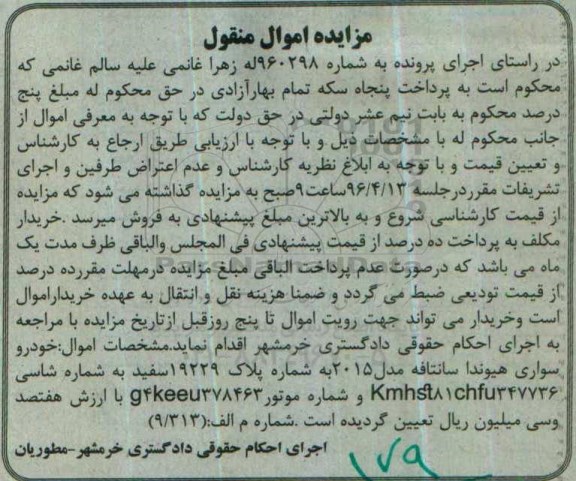 مزایده اموال منقول
در راستای اجرای پرونده به شماره ۹۶۰۲۹۸له زهرا غانمی علیه سالم غانمی که
محکوم است به پرداخت پنجاه سکه تمام بهارآزادی در حق محکوم له مبلغ پنج
درصد محکوم به بابت نیم عشر دولتی در حق دولت که با توجه به معرفی اموال از
جانب محکوم له با مشخصات ذیل و با توجه با ارزیابی طریق ارجاع به کارشناس
و تعیین قیمت و با توجه به ابلاغ نظریه کارشناس و عدم اعتراض طرفین و اجرای
تشریفات مقرردرجلسه ۹۶/۴/۱۳ساعت۹صبح به مزایده گذاشته می شود که مزایده
از قیمت کارشناسی شروع و به بالاترین مبلغ پیشنهادی به فروش میرسد .خریدار
مکلف به پرداخت ده درصد از قیمت پیشنهادی فی المجلس والباقی ظرف مدت یک
ماه می باشد که درصورت عدم پرداخت الباقی مبلغ مزایده درمهلت مقررده درصد
از قیمت تودیعی ضبط می گردد و ضمنا هزینه نقل و انتقال به عهده خریداراموال
است وخریدار می تواند جهت رویت اموال تا پنج روزقبل ازتاریخ مزایده با مراجعه
به اجرای احکام حقوقی دادگستری خرمشهر اقدام نماید.مشخصات اموال:خودرو
سواری هیوندا سانتافه مدل۲۰۱۵به شماره پلاک ۱۹۲۲۹سفید به شماره شاسی
Kmhst۸۱chfu۳۴۷۷۳۶ و شماره موتورg۴keeu۳۷۸۴۶۳ با ارزش هفتصد
وسی میلیون ریال تعیین گردیده است .شماره م الف:(۹/۳۱۳)
اجرای احکام حقوقی دادگستری خرمشهر-مطوریان
۱۷۹